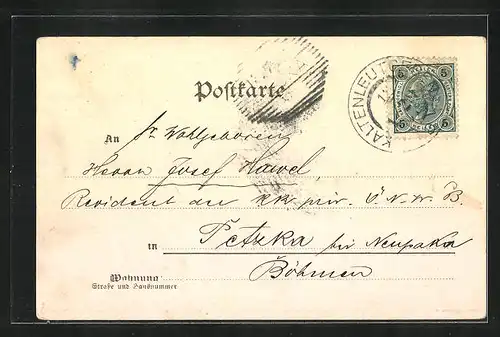 Postkarte
KALTENLEU
5 5
5 5
An Sr. Wohlgeboren
Herrn Josef Hawel,
Revident der kk. priv. Ö. N. W. B.
in Petzka bei Neupaka
Böhmen
Wohnung
Straße und Hausnummer